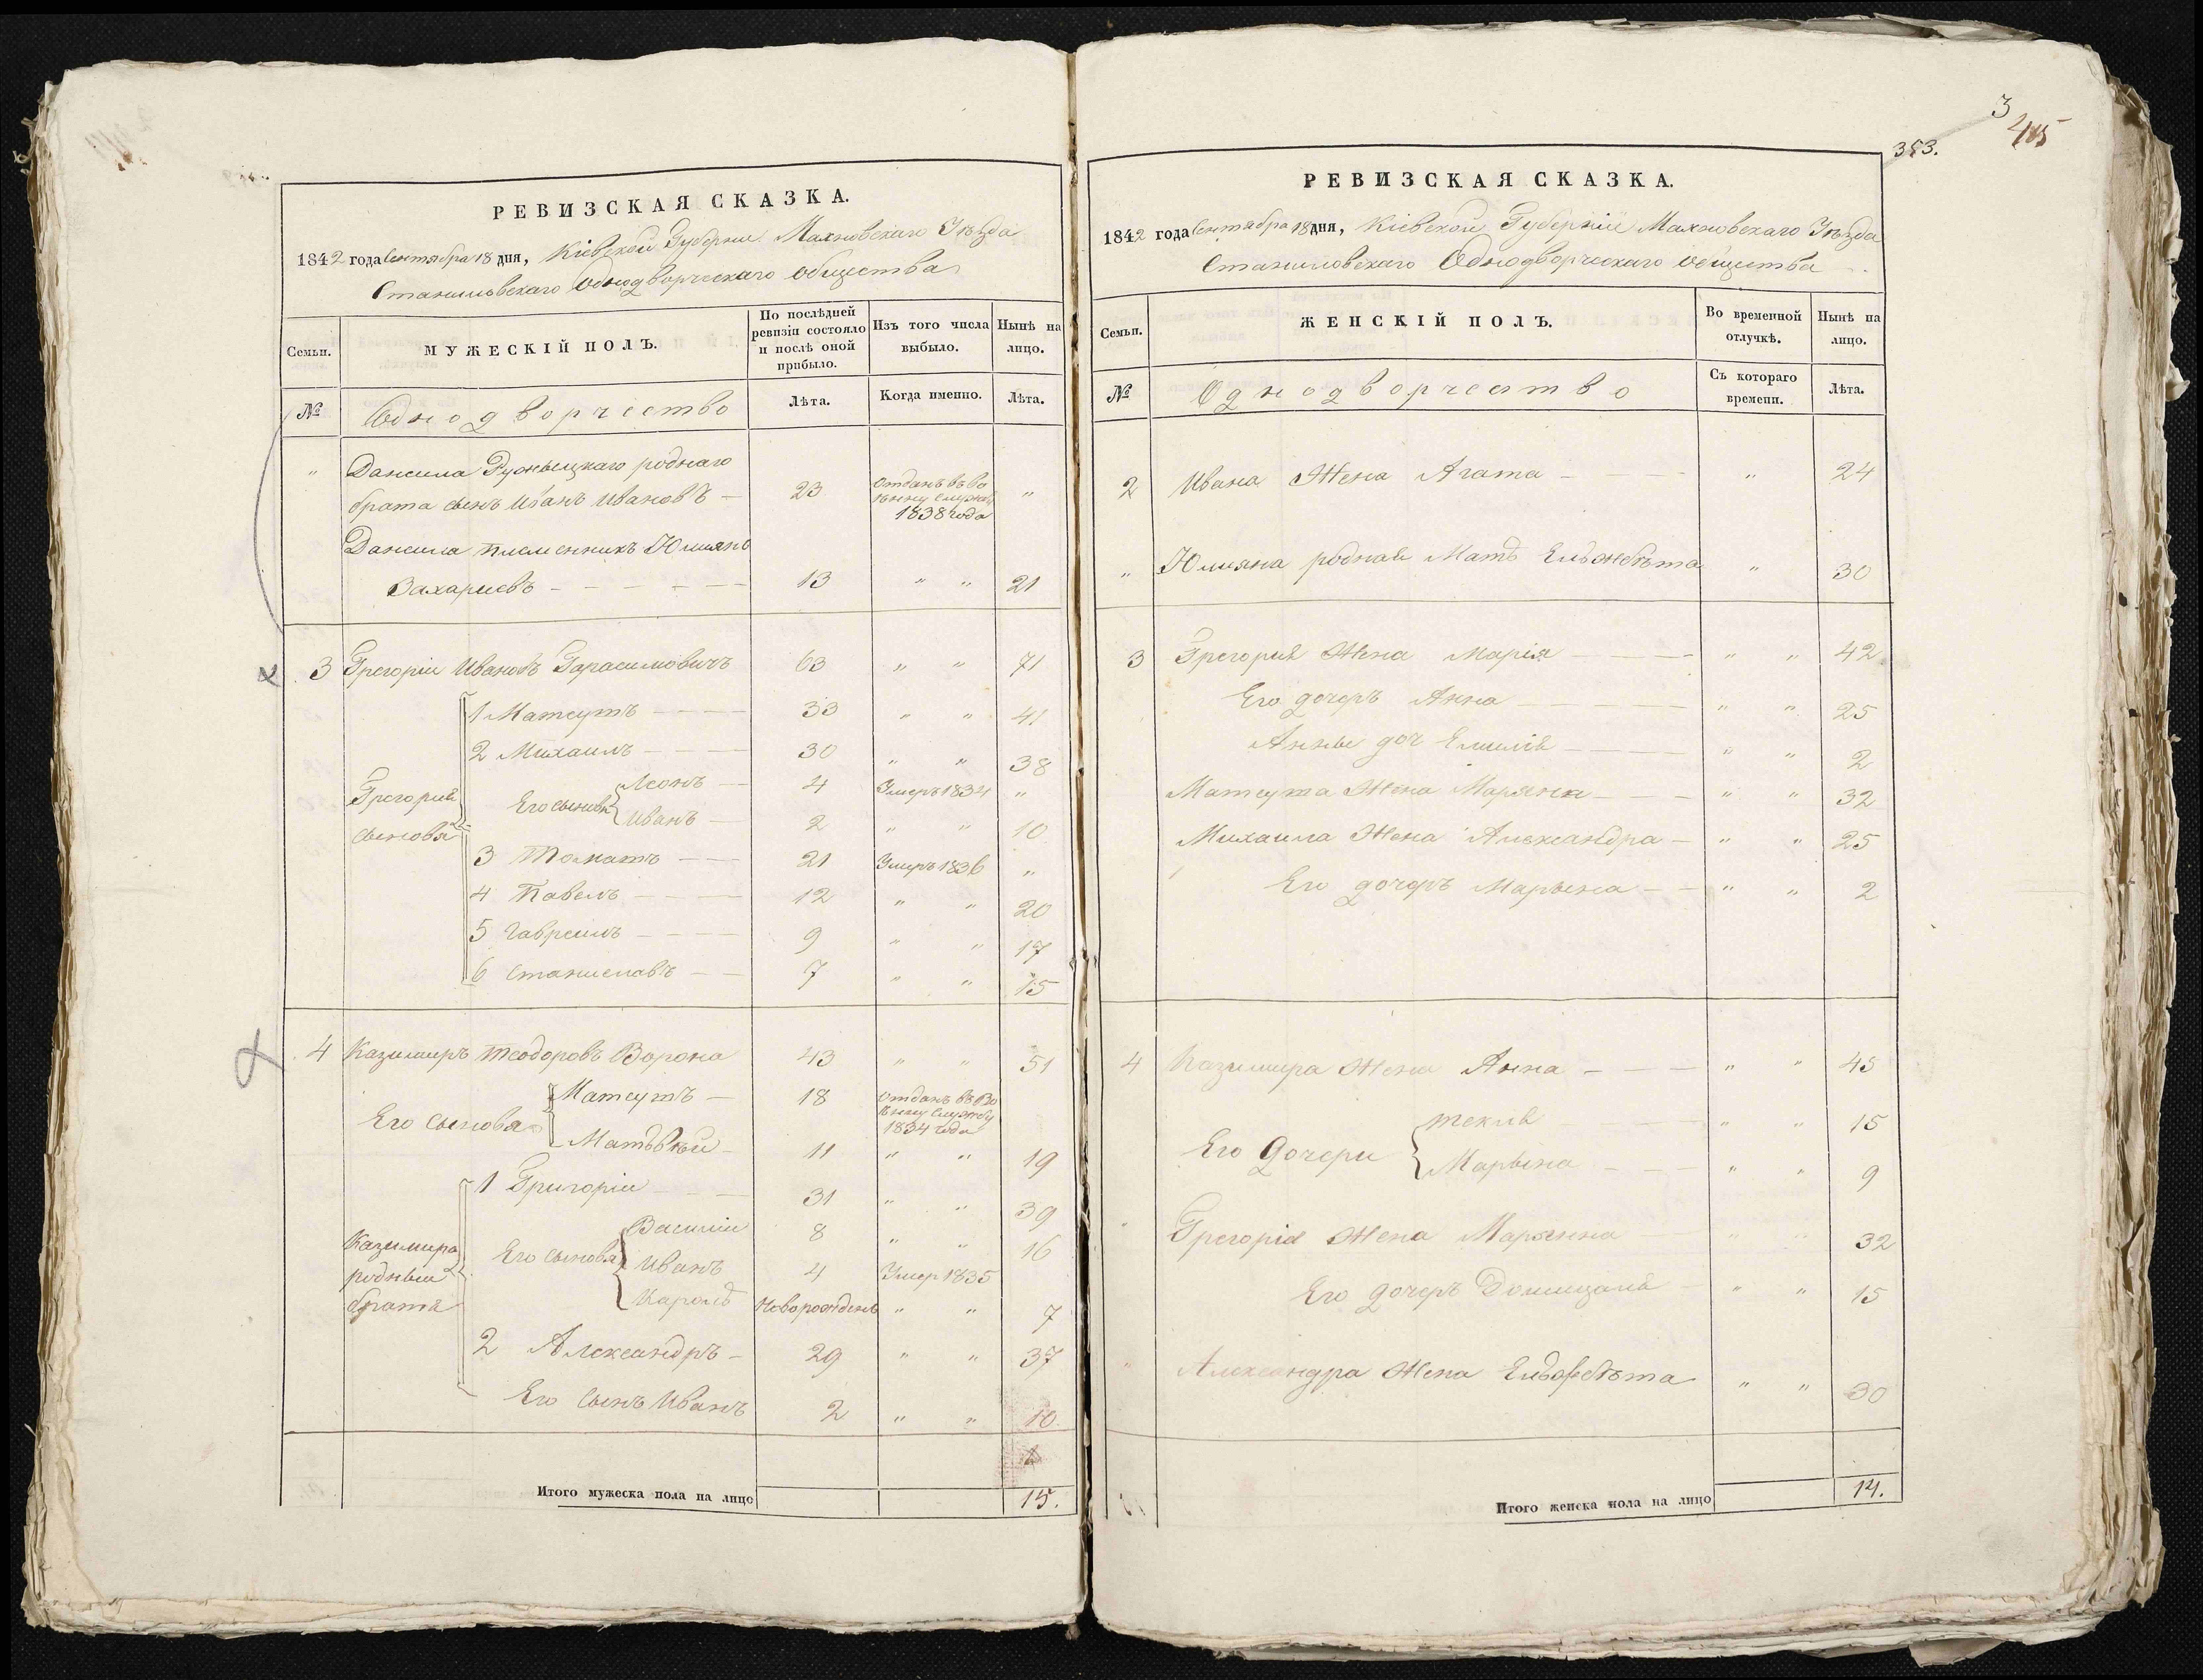 РЕВИЗСКАЯ СКАЗКА.
1842 года Сентября 18 дня, Кіевской Губерніи Махновскаго Уѣзда
Станиловскаго Однодворческаго общества
Семьи.
МУЖЕСКІЙ ПОЛЪ.
По послѣдней ревизіи состояло и послѣ оной прибыло.
Изъ того числа выбыло.
Нынѣ на лицо.
№
Однодворчество
Лѣта.
Когда именно.
Лѣта.
" Данила роднаго
брата сынъ Иванъ Ивановъ – 23 Отданъ въ во
1838 года "
Данила племенникъ Юлиянъ
Захариевъ – – – – – 13 " " 21
3 Грегоріи Ивановъ Гарасимовичъ 63 " " 71
Грегорія сыновя
1 Матеутъ – – – 33 " " 41
2 Михаилъ – – – 30 " " 38
Его сыновя Леонъ – 4 Умеръ 1834 "
Иванъ – 2 " " 10
3 – – 21 Умеръ 1836 "
4 Павелъ – – – 12 " " 20
5 Гавреилъ – – – 9 " " 17
6 Станиславъ – – 7 " " 15
4 Казимиръ Теодоровъ Ворона 43 " " 51
Его сыновя
Матеутъ – 18 Отданъ въ во
ѣнну службу
1834 года
Матѣвѣй – 11 " " 19
Казимира родныи братя
1 Григоріи – – – 31 " " 39
Его сыновя Василіи 8 " " 16
Иванъ 4 Умер 1835
Кароль Новорожденъ " " 7
2 Александръ – 29 " " 37
Его сынъ Иванъ 2 " " 10
Итого мужеска пола на лицо 15.
3
405
353.
РЕВИЗСКАЯ СКАЗКА.
1842 года Сентября 18 дня, Кіевской Губерніи Махновскаго Уѣзда
Станиловскаго Однодворческаго общества
Семьи.
ЖЕНСКІЙ ПОЛЪ.
Во временной отлучкѣ.
Нынѣ на лицо.
№
Однодворчество
Съ котораго времени.
Лѣта.
2 Ивана Жена Агата – – – – " 24
" Юлияна родная Мать Ельжбѣта " 30
3 Грегорія Жена Марія – – – – " " 42
Его дочеръ Анна – – – – – " " 25
Анны доч Емилія – – – – " " 2
Матеута Жена Маряна – – – " " 32
Михаила Жена Александра – " " 25
Его дочеръ Марьяна – – " " 2
4 Казимира Жена Анна – – – – " " 45
Его Дочери
Текля – – – " " 15
Марьяна – – – " " 9
" Грегорія Жена Марянна " " 32
Его дочеръ " " 15
" Александра Жена Ельжбѣта " " 30
Итого женска пола на лицо 14.